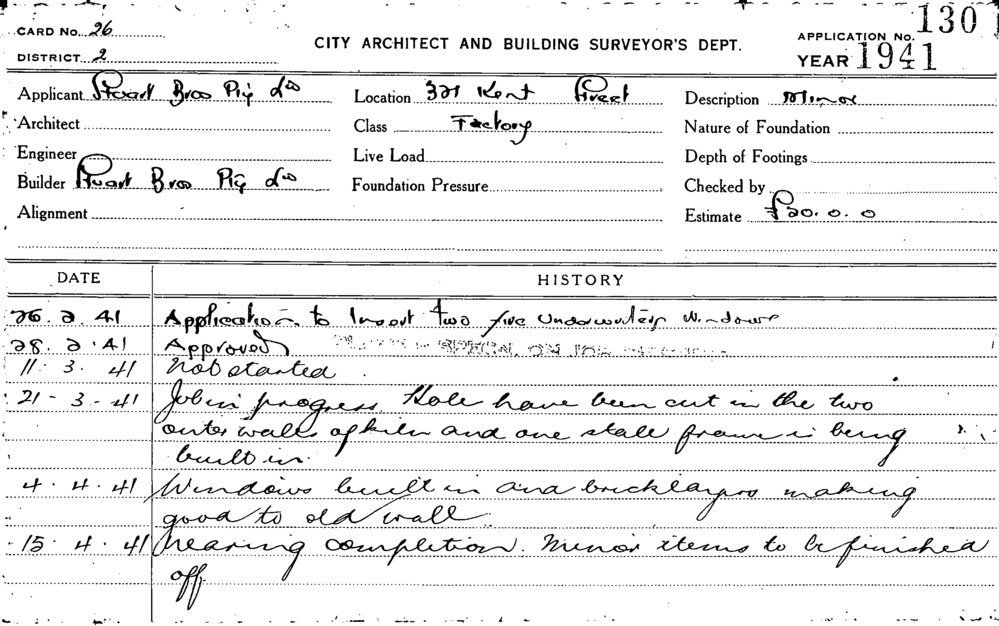 CARD No. 26
DISTRICT 2
CITY ARCHITECT AND BUILDING SURVEYOR'S DEPT.
APPLICATION No. 130
YEAR 1941
Applicant Stuart Bros Pty Ld
Location 321 Kent Street
Description Minor
Architect
Class Factory
Nature of Foundation
Engineer
Live Load
Depth of Footings
Builder Stuart Bros Pty Ld
Foundation Pressure
Checked by
Alignment
Estimate £20.0.0
DATE HISTORY
26.2.41 Application to Insert two fire underwriters windows
28.2.41 Approved ON JOB
11.3.41 Not started
21-3-41 Job in progress. Hole have been cut in the two
outer walls of and one frame is being
built in.
4.4.41 Windows built in and bricklayers making
good to old wall
15.4.41 Nearing completion. Minor items to be finished
off.